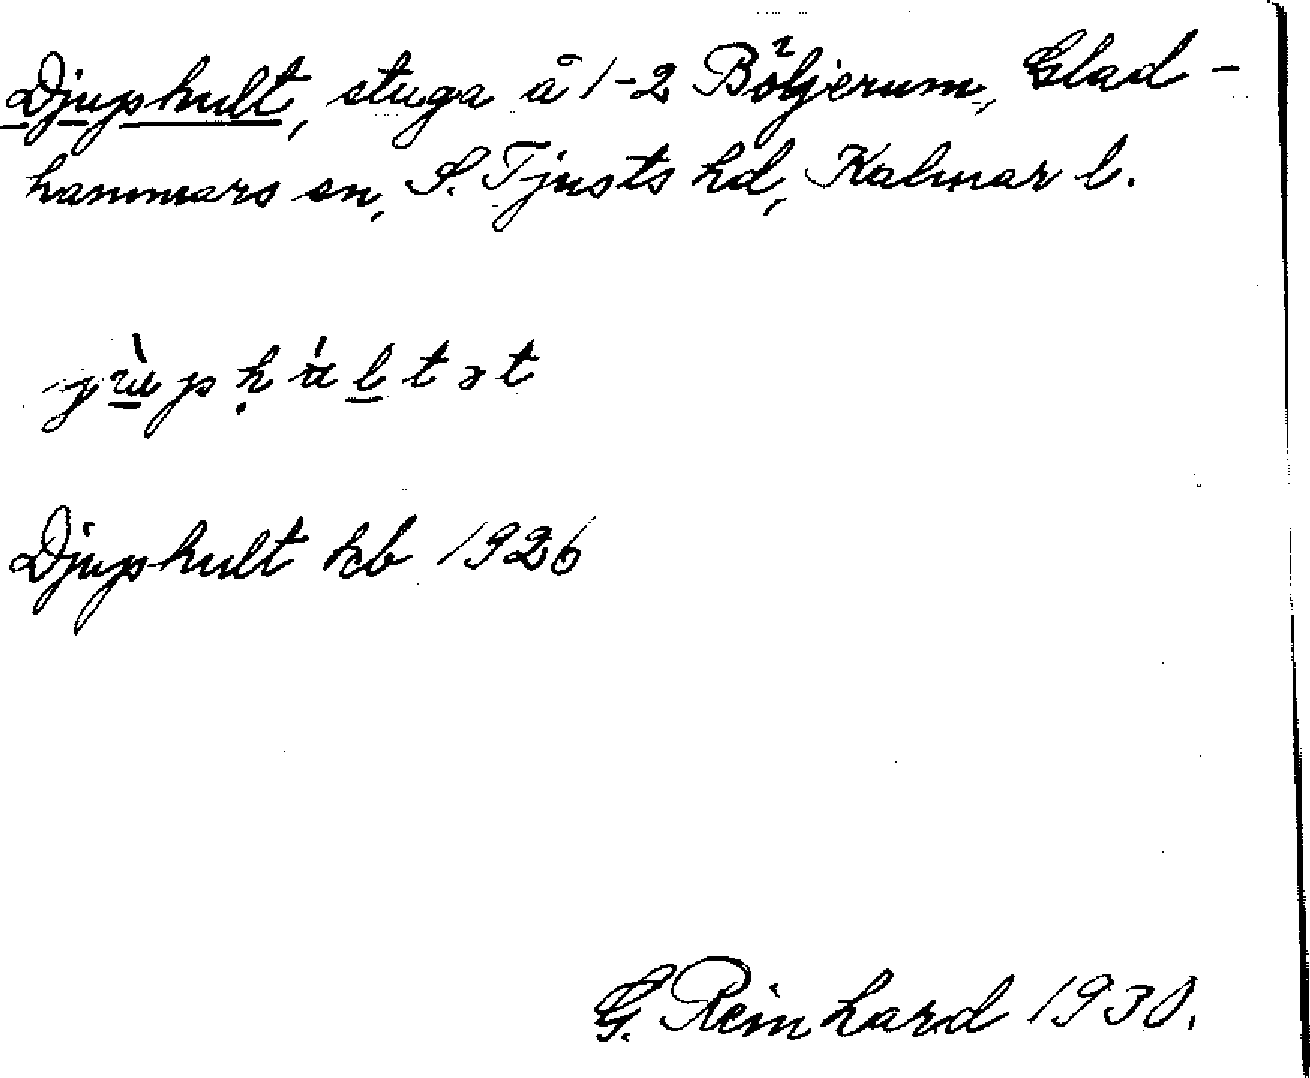 Djuphult, stuga å 1-2 Böljerum, Glad-
hammars sn, S. Tjusts hd, Kalmar l.
Djuphult kb 1926
G. Reinhard 1930.